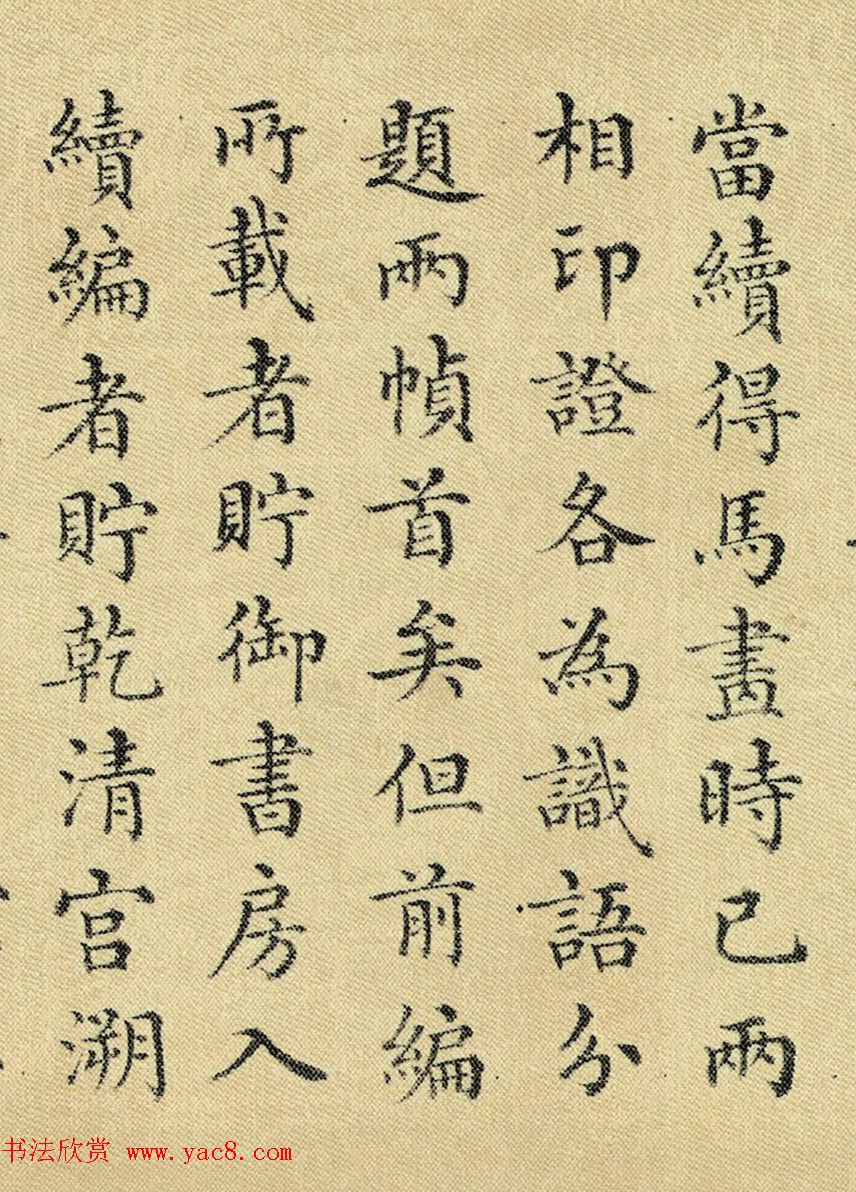 當續得馬畫時已兩
相印證各為識語分
題兩幀首矣但前編
所載者貯御書房入
續編者貯乾清宮溯
书法欣赏 www.yac8.com